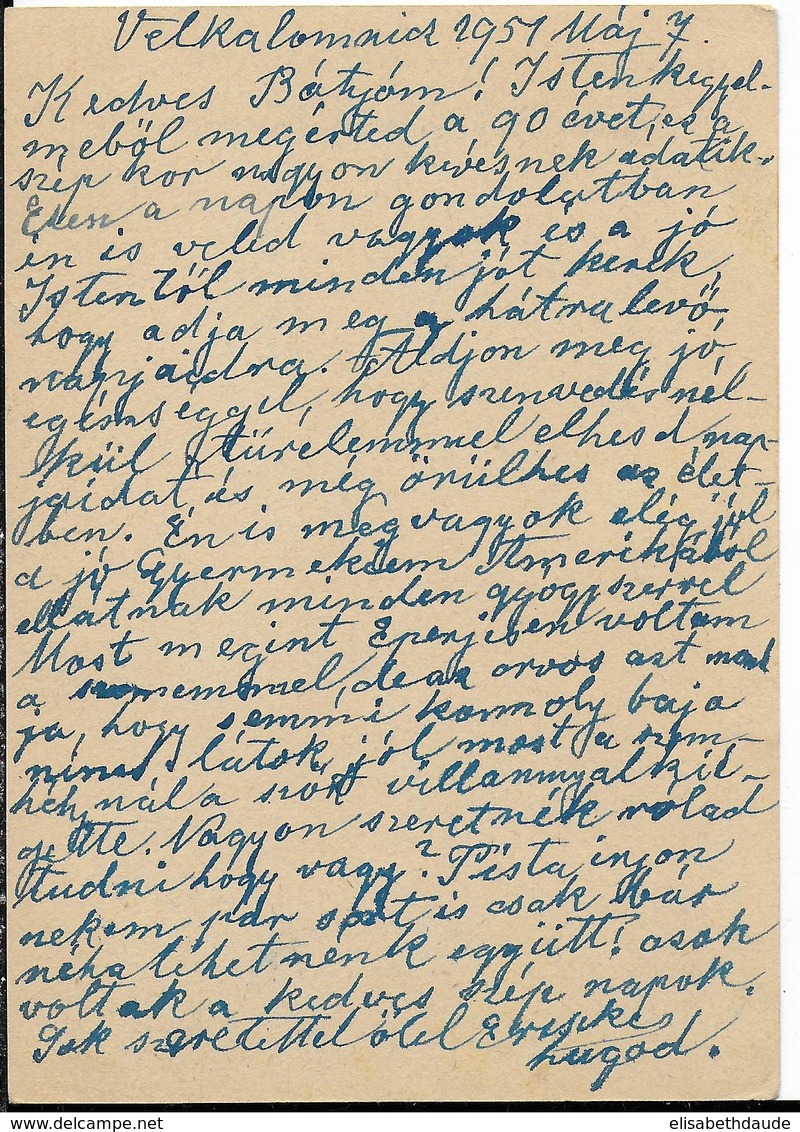 Velkalomnicz 1951 Máj 7.
Kedves Bátyóm! Isten kegyel-
méből megérted a 90 évet, ez a
szép kor nagyon kevesnek adatik.
Ezen a napon gondolatban
én is veled vagyok és a jó
Istentől minden jót kerek,
hogy adja meg a hátralevő
napjaidra. Áldjon meg jó
egészséggel, hogy szenvedés nél-
kül türelemmel elhesd nap-
jaidat és még örülhes az élet-
ben. Én is meg vagyok elég jól
a jó Gyermekeim Amerikából
ellátnak minden gyógyszerrel
Most megint Eperjesen voltam
a szememmel, de az orvos azt mond
ja, hogy semmi komoly baja
nincs látok jól most a szem-
héj nál a szőrt villannyal kié-
gette. Nagyon szeretnék rólad
tudni hogy vagy? Pista irjon
nekem pár sort is csak bár
néha lehetnénk együtt! azok
voltak a kedves szép napok.
Sok szeretettel ölel Erzsike
hugod.
elisabethdaude